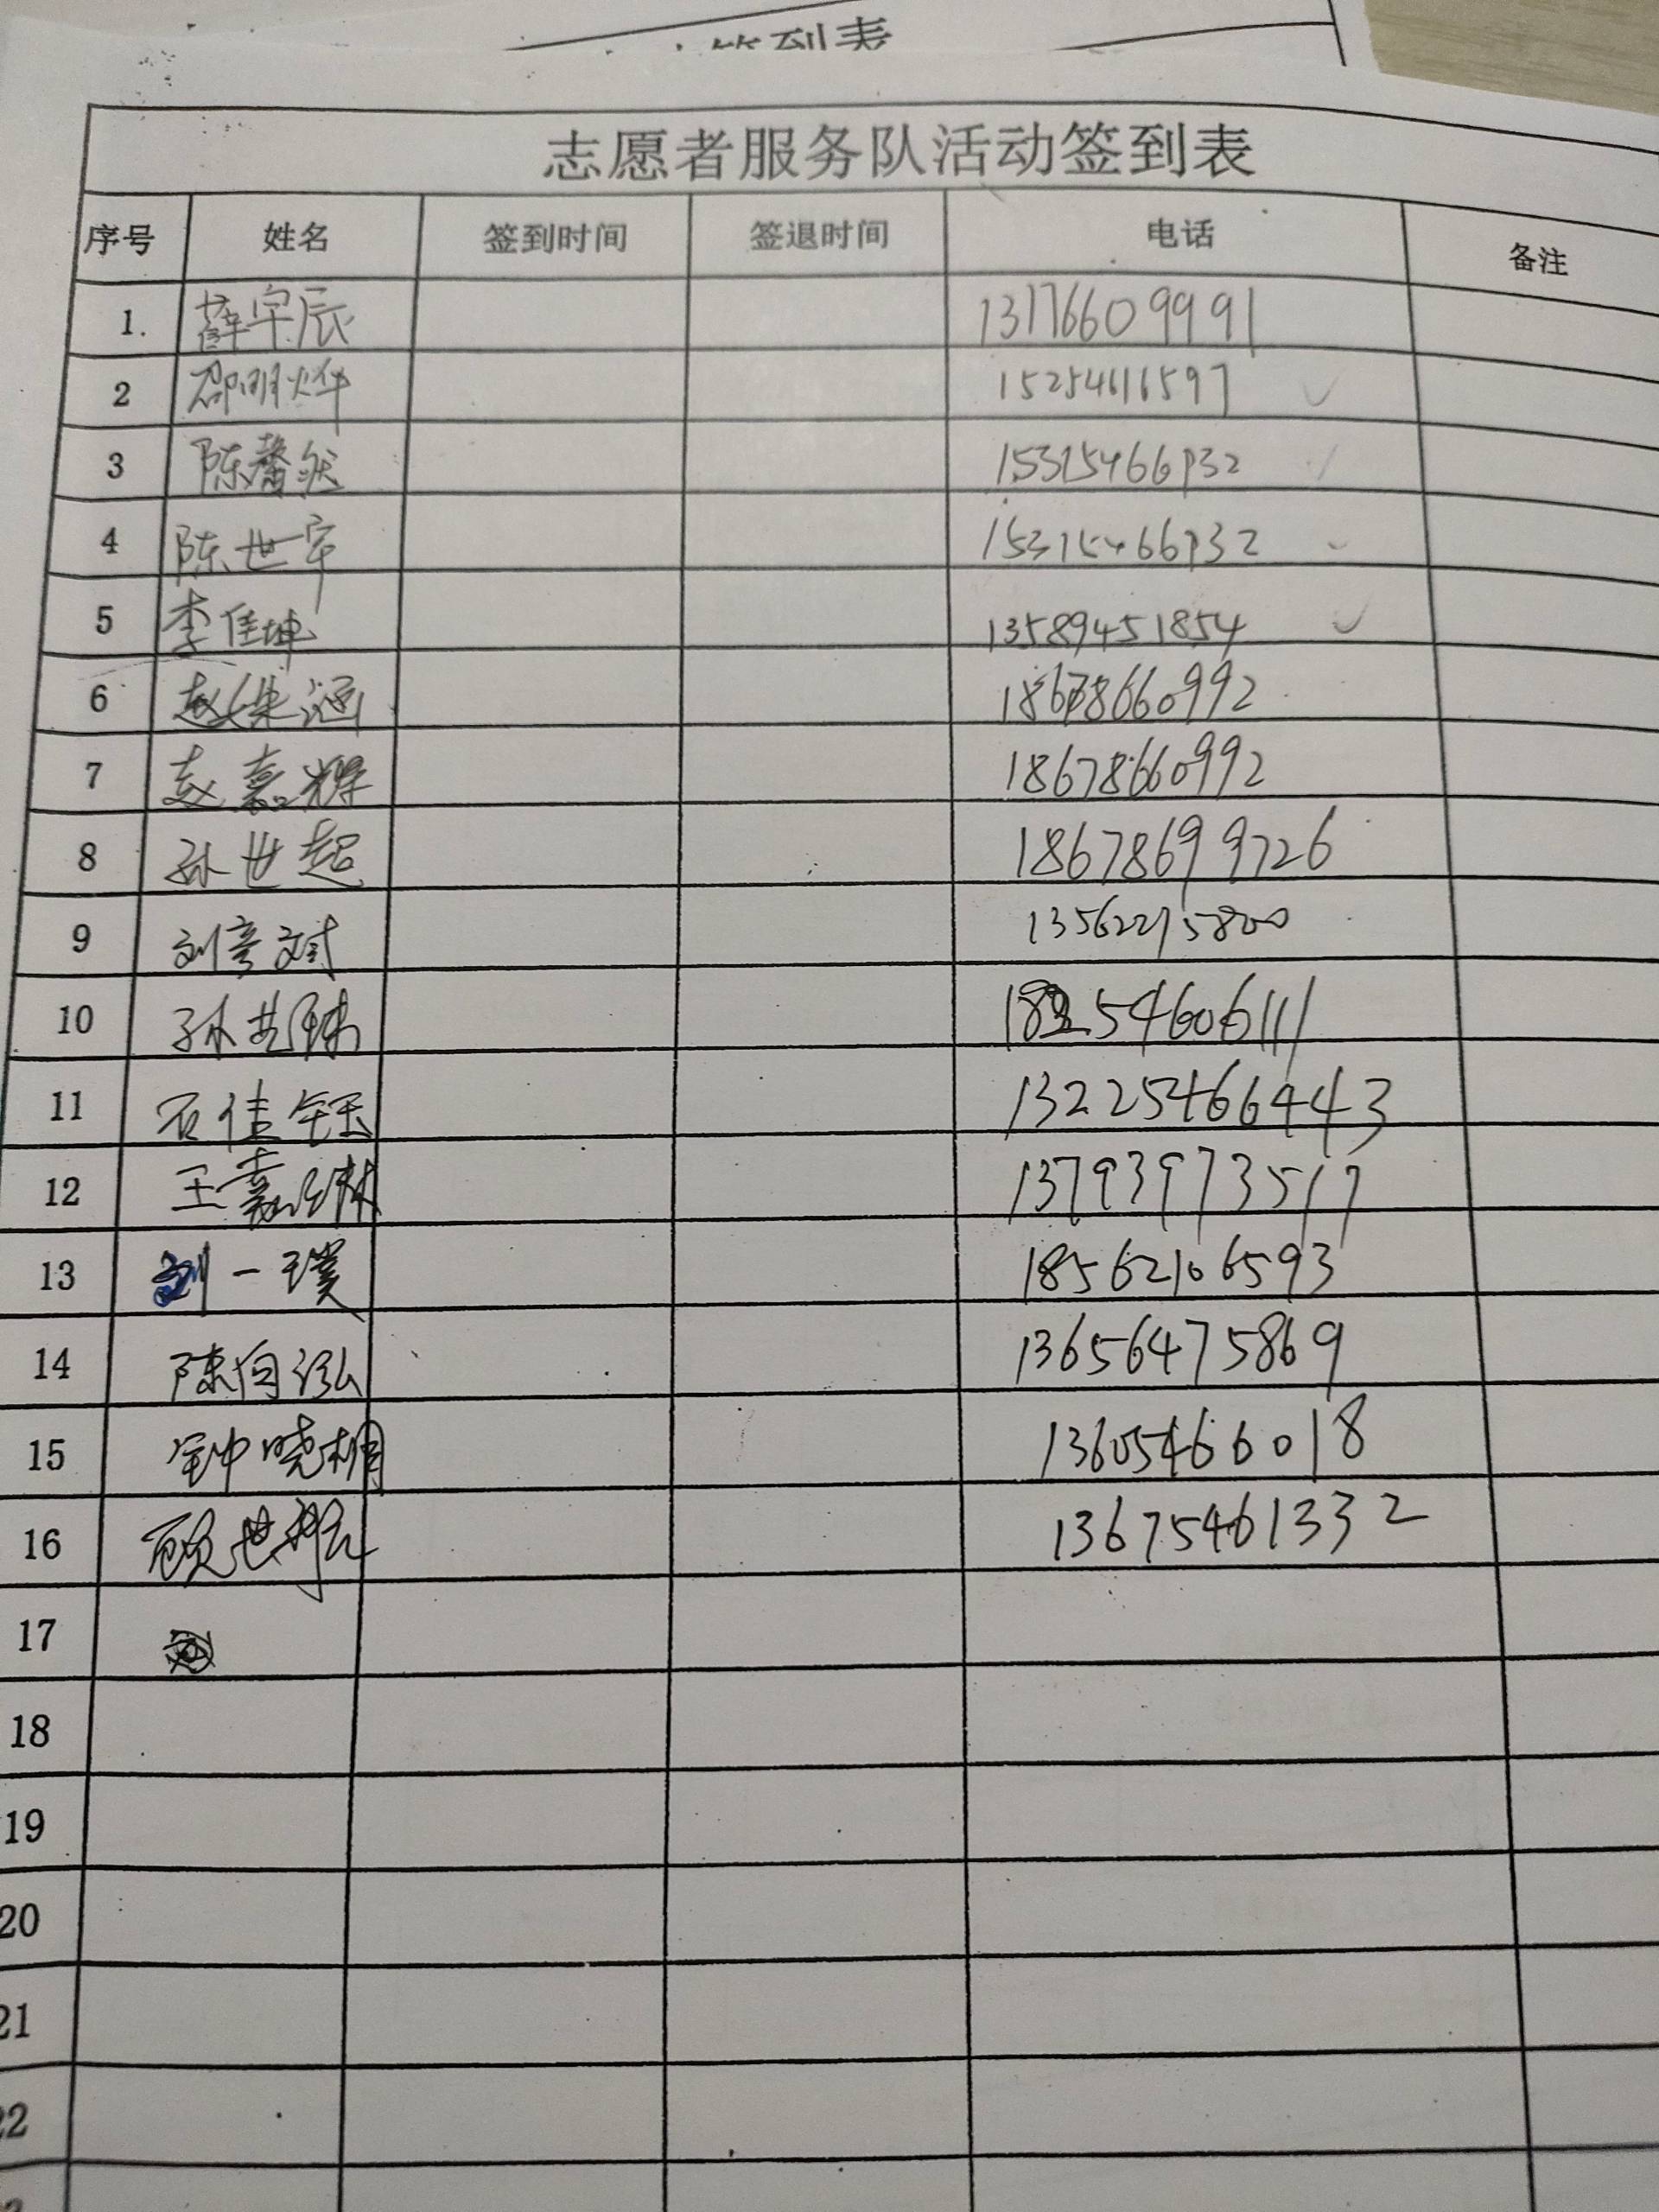 签到表
志愿者服务队活动签到表
序号 姓名 签到时间 签退时间 电话 备注
1. 薛宇辰 13176609991
2 邵明烨 15254616597
3 陈馨然 15315466932
4 陈世宇 15315466932
5 李佳坤 13589451854
6 赵姝涵 18678660992
7 赵嘉辉 18678660992
8 孙世超 18678699726
9 刘彦斌 13562215800
10 孙艺 18254606111
11 石佳钰 13225466443
12 王嘉琳 13793973517
13 刘一璞 18562106593
14 陈向泓 13656475869
15 钟晓桐 13605466018
16 顾世 13675461332
17
18
19
20
21
22